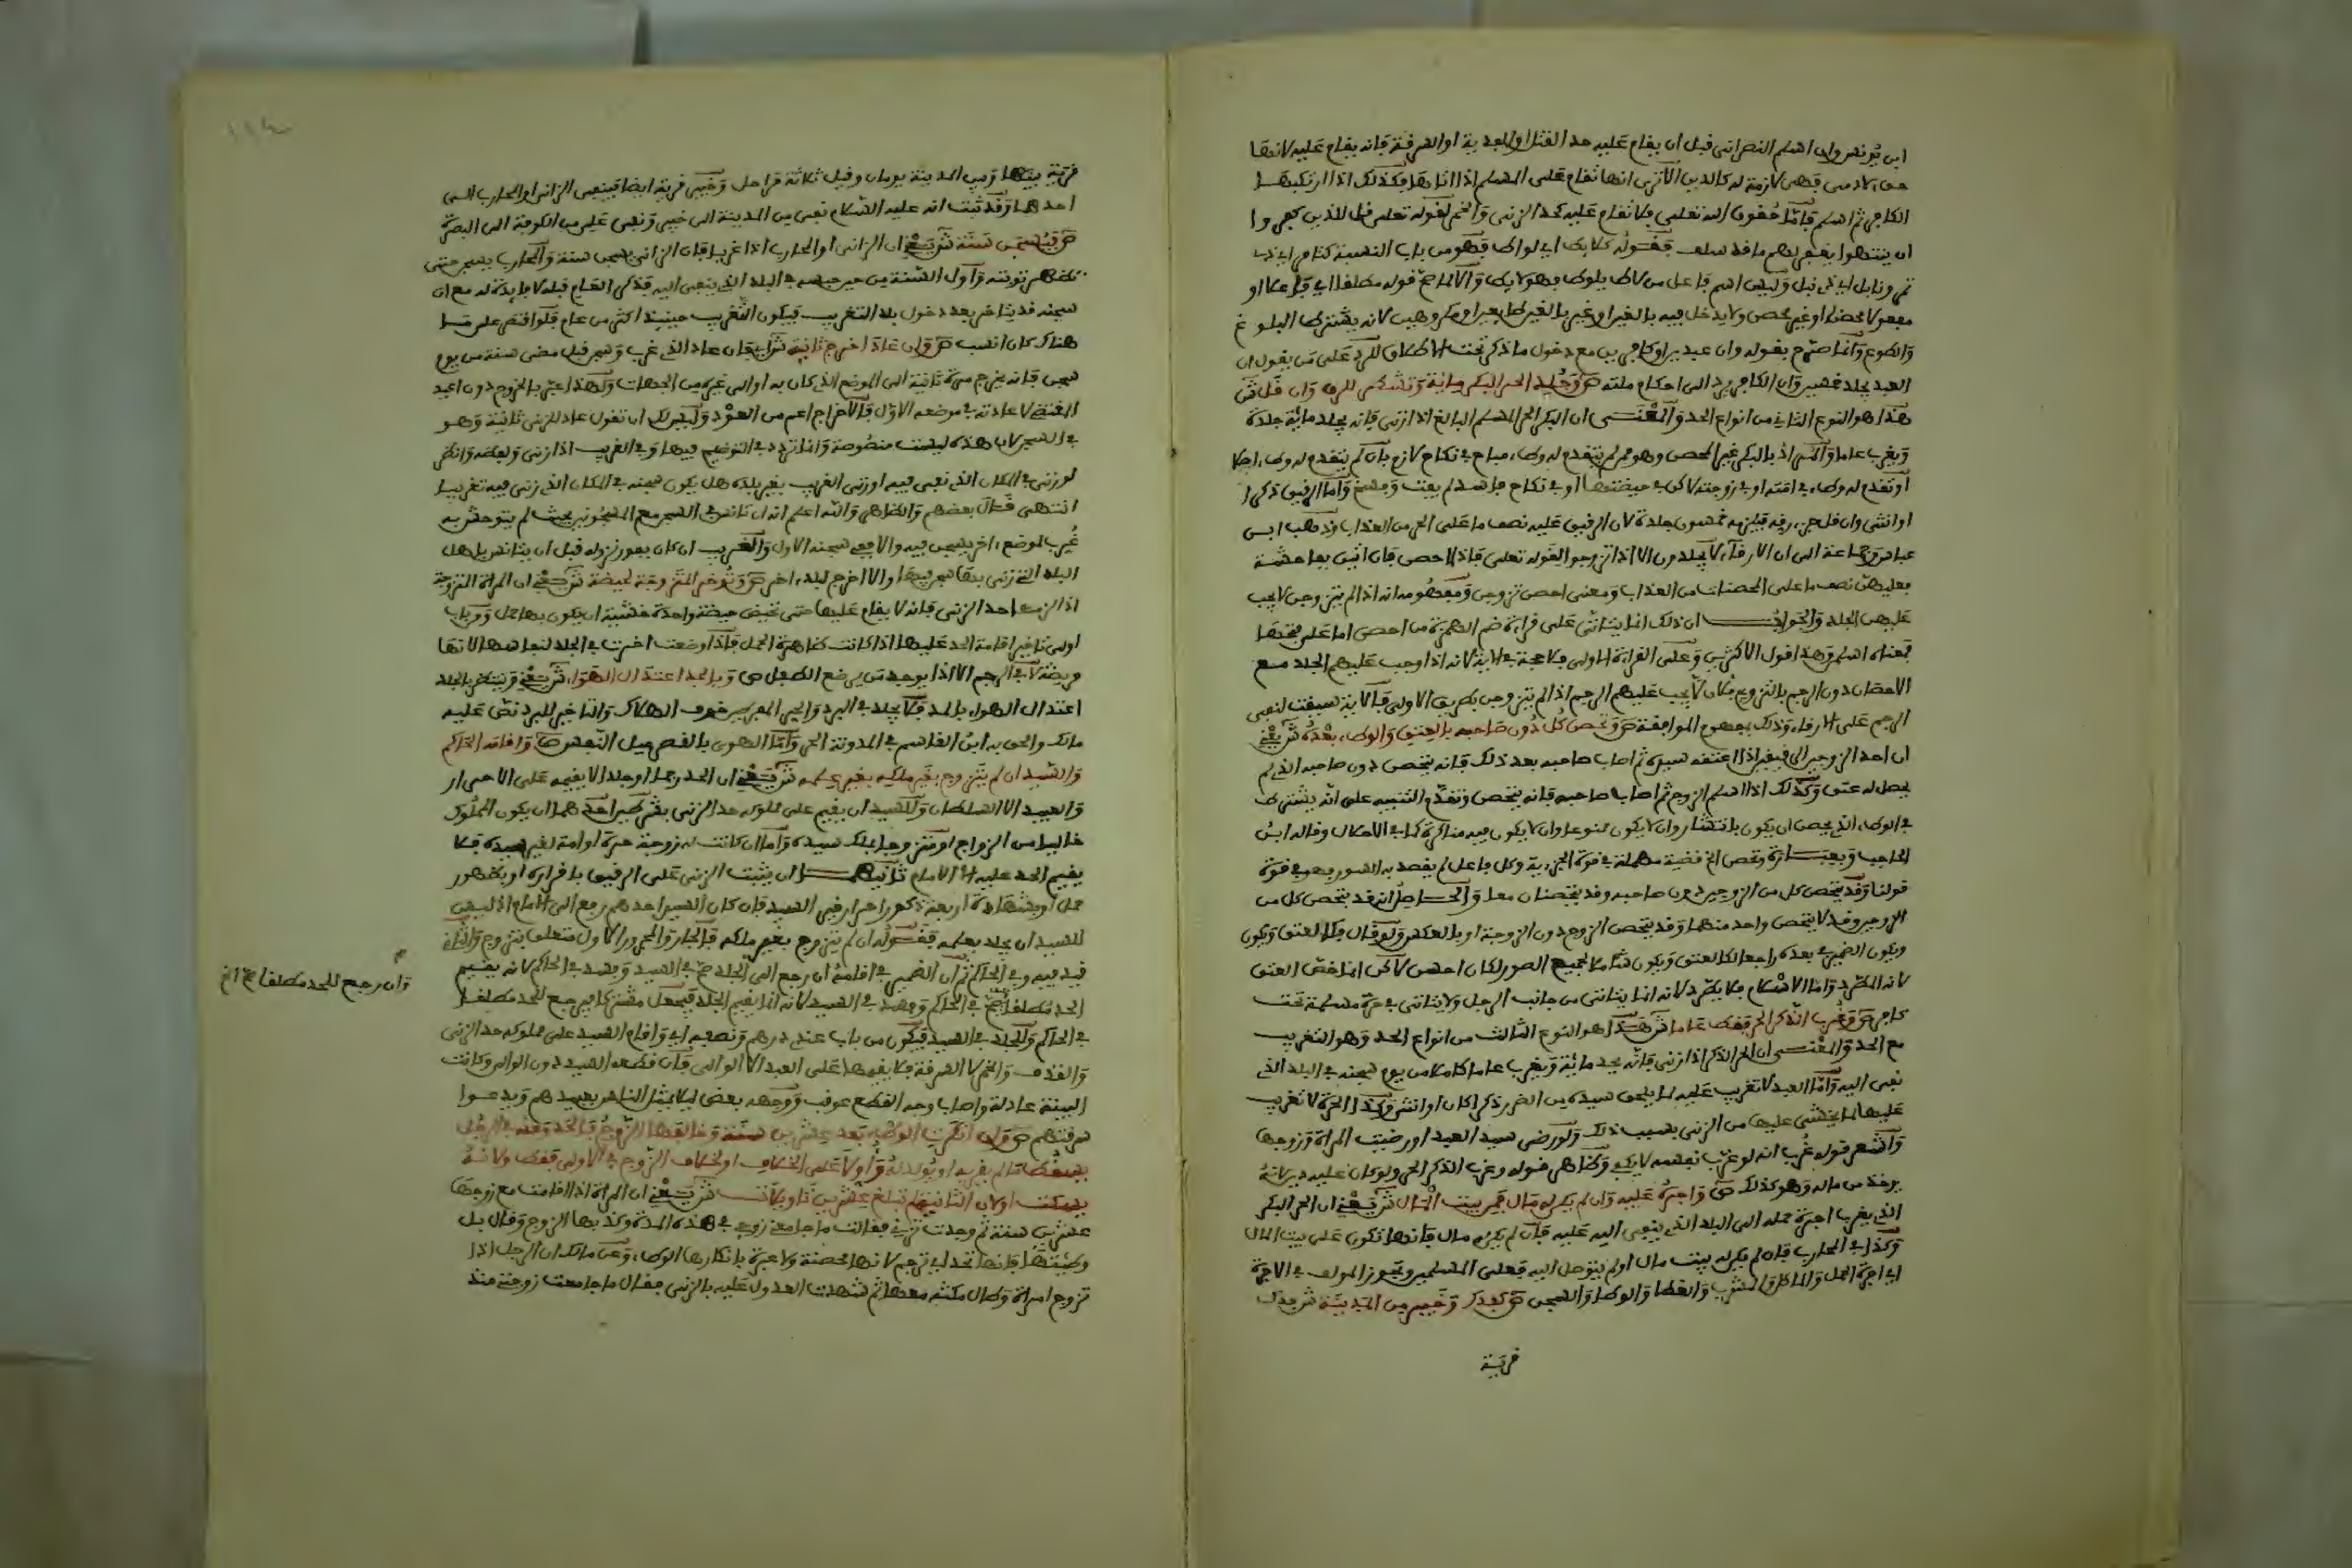 ابن يونس وان اسلم النصراني قبل ان يقام عليه حد القتل او الفرية او السرقة فانه يقام عليه لانها
حق لادمي فهي لازمة له كالدين الا ترى انها تقام على المسلم اذا اتاها فكذلك اذا ارتكبها
الكافر ثم اسلم فاما حقوق الله تعلى فلا تقام عليه كحد الزنى والخمر لقوله تعلى قل للذين كفروا
ان ينتهوا يغفر لهم ما قد سلف فقوله كلايط اي لواط فهو من باب النسبة كتامر اي ذي
تمر ونابل اي ذي نبل وليس اسم فاعل من لاط يلوط وهو لايط والا لما صح قوله مطلقا اي فاعلا او
مفعولا محصنا او غير محصن ولا يدخل فيه بالغير او غير بالغير طايعير او مكروهين لانه يشترط البلوغ
والطوع وانما صرح بقوله وان عبدين او كافرين مع دخول ما ذكر تحت الاطلاق للرد على من يقول ان
العبد يجلد خمسين وان الكافر يرد الى احكام ملته ص وجلد الحر البكر ماية وتشطر للرق وان قل ش
هذا هو النوع الثاني من انواع الحد والمعنى ان البكر الحر المسلم البالغ اذا زنى فانه يجلد ماية جلدة
ويغرب عاما والمراد بالبكر غير المحصن وهو من لم يتقدم له وطء مباح في نكاح لازم بان لم يتقدم له وطء اصلا
او تقدم له وطء في امته او في زوجته لاكن في حيضتها او في نكاح فاسد لم يفت وفسخ واما الرقيق ذكرا
او انثى وان قل جزء رقه فيلزمه خمسون جلدة لان الرقيق عليه نصف ما على الحر من العذاب وذهب ابن
عباس وجماعة الى ان الارقاء لا يجلدون الا اذا تزوجوا لقوله تعلى فاذا احصن فان اتين بفاحشة
فعليهن نصف ما على المحصنات من العذاب ومعنى احصن تزوجن ومفهومه انه اذا لم يتزوجن لا يجب
عليهن الجلد والجواب ان ذلك انما يتاتى على قراءة ضم الهمزة من احصن اما على فتحها
فمعناه اسلم وهذا قول الاكثرين وعلى القراءة الاولى فلا حجة في الاية لانه اذا وجب عليهم الجلد مع
الاحصان دون الرجم بالتزويج فكان لا يجب عليهم الرجم اذا لم يتزوجن بطريق الاولى فالاية سيقت لنفي
الرجم على الارقاء وذلك بمفهوم الموافقة ص وتحصن كل دون صاحبه بالعتق والوطء بعده ش يعني
ان احد الزوجين الرقيقين اذا اعتقه سيده ثم اصاب صاحبه بعد ذلك فانه يتحصن دون صاحبه الذي لم
يحصل له عتق وكذلك اذا اسلم الزوج ثم اصاب صاحبه فانه يتحصن وتقدم التنبيه على انه يشترط
في الوطء الذي يحصن ان يكون بانتشار وان لا يكون ممنوعا وان لا يكون فيه مناكرة كما في الامكان وقاله ابن
الحاجب وبعبارة وتحصن الخ قضية مهملة في قوة الجزءية وكل فاعل لم يقصد به السور فهو في قوة
قولنا وقد يتحصن كل من الزوجين دون صاحبه وقد يتحصنان معا والحاصل انه قد يتحصن كل من
الزوجين وقد لا يتحصن واحد منهما وقد يتحصن الزوج دون الزوجة او بالعكس ولو قال بكالعتق ويكون
ويكون الضمير في بعده راجعا لكالعتق ويكون شاملا لجميع الصور لكان احسن لاكن انما خص العتق
لانه المطرد واما الاسلام فلا يطرد لانه انما يتاتى من جانب الرجل ولا يتاتى في حرة مسلمة تحت
كافر ص وغرب الذكر الحر فقط عاما ش هذا هو النوع الثالث من انواع الحد وهو التغريب
مع الحد والمعنى ان الحر الذكر اذا زنى فانه يحد ماية ويغرب عاما كاملا من يوم سجنه في البلد الذي
نفي اليه واما العبد لا تغريب عليه لما يلحق سيده من الضرر ذكرا كان او انثى وكذا الحرة لا تغريب
عليها لما يخشى عليها من الزنى بسبب ذلك ولو رضي سيد العبد او رضيت المراة وزوجها
واشعر قوله غرب انه لو غرب نفسه لا يكفي وظاهر قوله وغرب الذكر الحر ولو كان عليه دين لانه
يوخذ من ماله وهو كذلك ص واجره عليه وان لم يكن له مال فمن بيت المال ش يعني ان الحر البكر
الذي يغرب اجرة حمله الى البلد الذي ينفى اليه عليه فان لم يكن له مال فانها تكون على بيت المال
وكذا في المحارب فان لم يكن بيت مال او لم يتوصل اليه فعلى المسلمين وتجوز المولف في الاجرة
اي اجرة الحمل والماكل والمشرب والغطا والوطا والسجن ص كفدك وخيبر من المدينة ش فدك
قرية
قرية بينها وبين المدينة يومان وقيل ثلاثة مراحل وخيبر قرية ايضا فينفى الزاني او المحارب الى
احدهما وقد ثبت انه عليه السلام نفى من المدينة الى خيبر ونفى علي من الكوفة الى البصرة
ص فيسجن سنة ش يعني ان الزاني او المحارب اذا غربا فان الزاني يسجن سنة والمحارب يسجن حتى
تظهر توبته واول السنة من حين حبسه في البلد الذي ينفى اليه فذكر العام قبله لا فايدة له مع ان
سجنه قد يتاخر بعد دخول بلد التغريب فيكون التغريب حينيذ اكثر من عام فلو اقتصر على ما
هناك كان انسب ص وان عاد اخرج ثانية ش اي فان عاد الذي غرب وسجن قبل مضي سنة من يوم
سجن فانه يخرج مرة ثانية الى الموضع الذي كان به او الى غيره من الجهات ولهذا اعبر بالخروج دون اعيد
المقتضي لاعادته في موضعه الاول فالاخراج اعم من العود وليس لك ان تقول عاد للزنى ثانية وهو
في السجن لان هذه ليست منصوصة وانما تردد في التوضيح فيها وفي الغريب اذا زنى ولفظه وانظر
لو زنى في المكان الذي نفي فيه او زنى الغريب بغير بلده هل يكون سجنه في المكان الذي زنى فيه تغريبا
انتهى قال بعضهم والظاهر والله اعلم انه ان تانس في السجن مع المسجونين بحيث لم يتوحش به
غرب لموضع اخر يسجن فيه والا فيعد سجنه الاول والغريب ان كان بفور نزوله قبل ان يتانس باهل
البلد التي زنى بها سجن فيها والا اخرج لبلد اخر ص وتوخر المتزوجة لحيضة ش يعني ان المراة المتزوجة
اذا لزمها حد الزنى فانه لا يقام عليها حتى تحيض حيضة واحدة خشية ان يكون بها حمل ومن باب
اولى تاخير اقامة الحد عليها اذا كانت ظاهرة الحمل فاذا وضعت اخرت في الجلد لنفاسها لانها
مريضة لا في الرجم الا اذا لم يوجد من يرضع الطفل ص وبالجلد اعتدال الهواء ش يعني وينتظر بالجلد
اعتدال الهواء بالحد فلا يجلد في البرد والحر المفرطين خوف الهلاك والتاخير للبرد نص عليه
مالك والحق به ابن القاسم في المدونة الحر واما اللهوى بالقصر ميل النفس ص واقامه الحاكم
والسيد ان لم يتزوج بغير ملكه بغير علمه ش يعني ان الحد رجما او جلدا لا يقيمه على الاحرار
والعبيد الا السلطان وللسيد ان يقيم على مملوكه حد الزنى بشرطين احدهما ان يكون المملوك
خاليا من الزواج او متزوجا بملك سيده واما ان كانت له زوجة حرة او امة لغير سيده فلا
يقيم الحد عليه الا الامام ثانيهما ان يثبت الزنى على الرقيق باقراره او بظهور
حمل او بشهادة اربعة ذكور احرار غير السيد فان كان السيد احدهم رفع الى الامام اذ ليس
للسيد ان يجلد بعلمه فقوله ان لم يتزوج بغير ملكه فالجار والمجرور الاول متعلق بتزوج والثاني
قيد فيه وفي الحاكم ثم ان الضمير في اقامه ان رجع الى الجلد صح في السيد وفسد في الحاكم لانه يقيم
الحد مطلقا صح في الحاكم وفسد في السيد لانه انما يقيم الجلد فيجعل مشتركا فيرجع للحد مطلقا
في الحاكم والجلد في السيد فيكون من باب عندي درهم ونصفه اي واقام السيد على مملوكه حد الزنى
والقذف والخمر لا السرقة فلا يقيمها على العبد الا الوالي فان قطعه السيد دون الوالي وكانت
البينة عادلة واصاب وجه القطع عوقب ووجهه بعض ليلا يمثل الناس بعبيدهم ويدعوا
سرقتهم ص وان انكرت الوطء بعد عشرين سنة وخالفها الزوج فالحد وعنه في الرجل
يسقط ما لم يقر به او يولد له واولا على الخلاف او لخلاف الزوج في الاولى فقط ولانه
يسكت او لان الثانية لم تبلغ عشرين تاويلات ش يعني ان المراة اذا اقامت مع زوجها
عشرين سنة ثم وجدت تزني فقالت ما جامعني زوجي في هذه المدة وكذبها الزوج وقال بل
وطيتها فانها تحد اي ترجم لانها محصنة ولا عبرة بانكارها الوطء وعن مالك ان الرجل اذا
تزوج امراة وطال مكثه معها ثم شهدت العدول عليه بالزنى فقال ما جامعت زوجتي منذ
وان رجع للحد مطلقا صح الخ